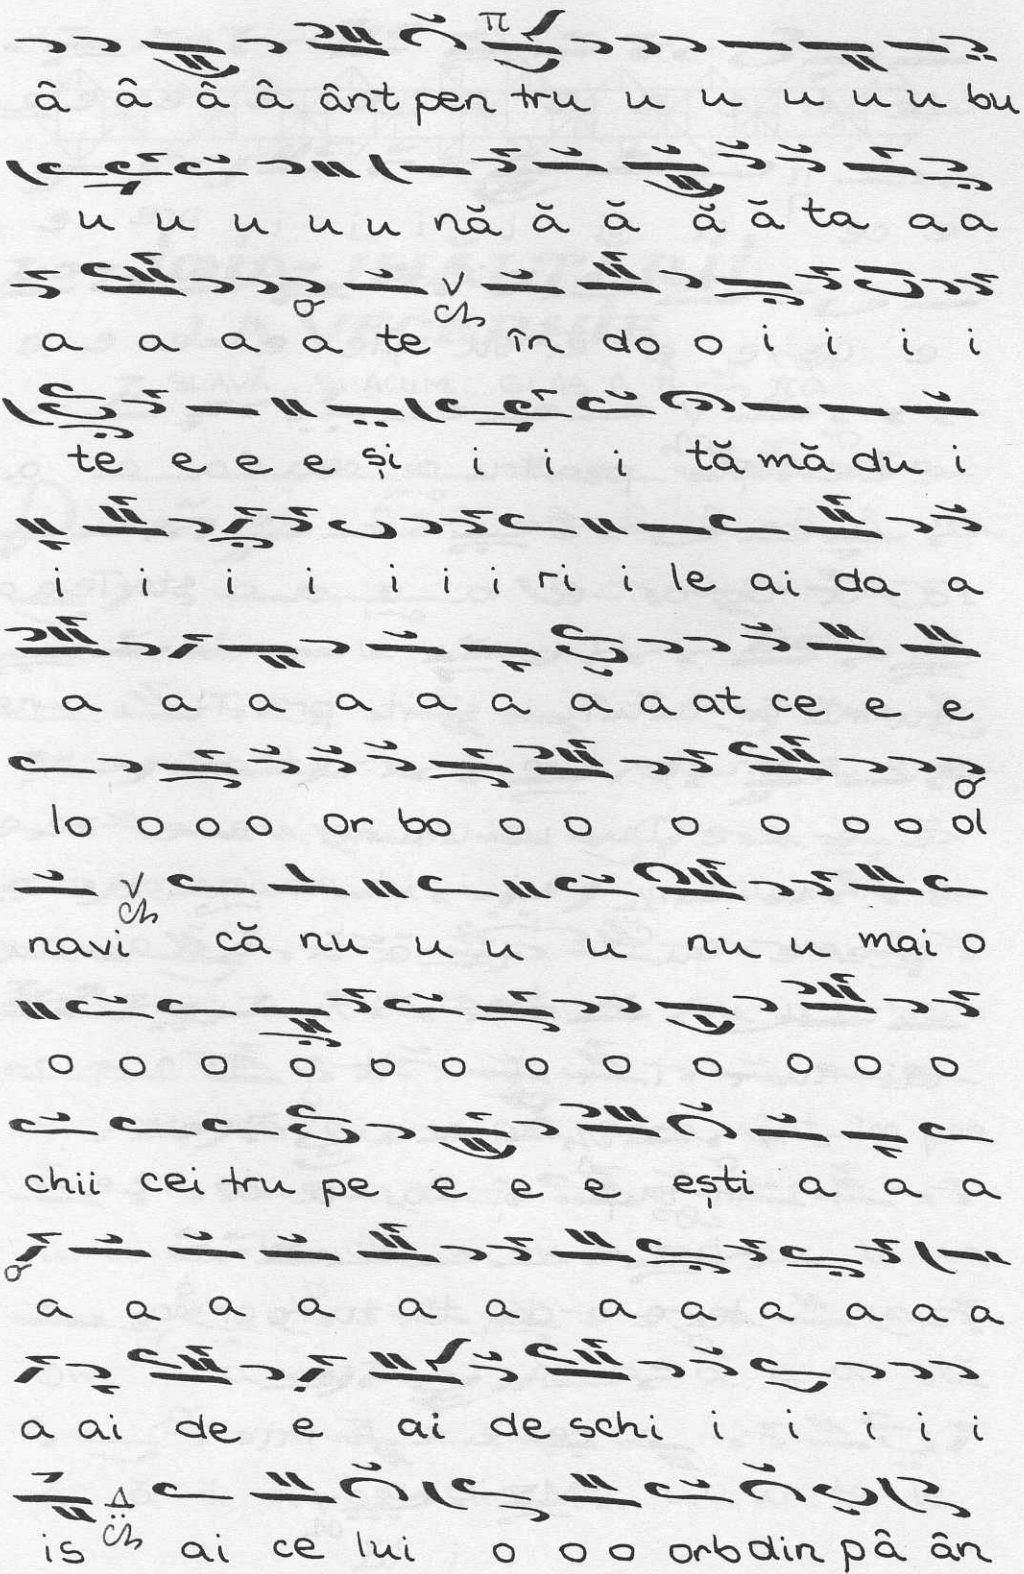 â â â â ânt pen tru u u u u u bu
u u u u u nă ă ă ă ă ta a a
a a a a te în do o i i i i
te e e e și i i i tă mă du i
i i i i i i i ri i le ai da a
a a a a a a a a at ce e e
lo o o o or bo o o o o o o ol
navi că nu u u u nu u mai o
o o o o o o o o o o o o
chii cei tru pe e e e ești a a a
a a a a a a a a a a a a
a ai de e ai de schi i i i i i
is ai ce lui o o o orb din pâ ân